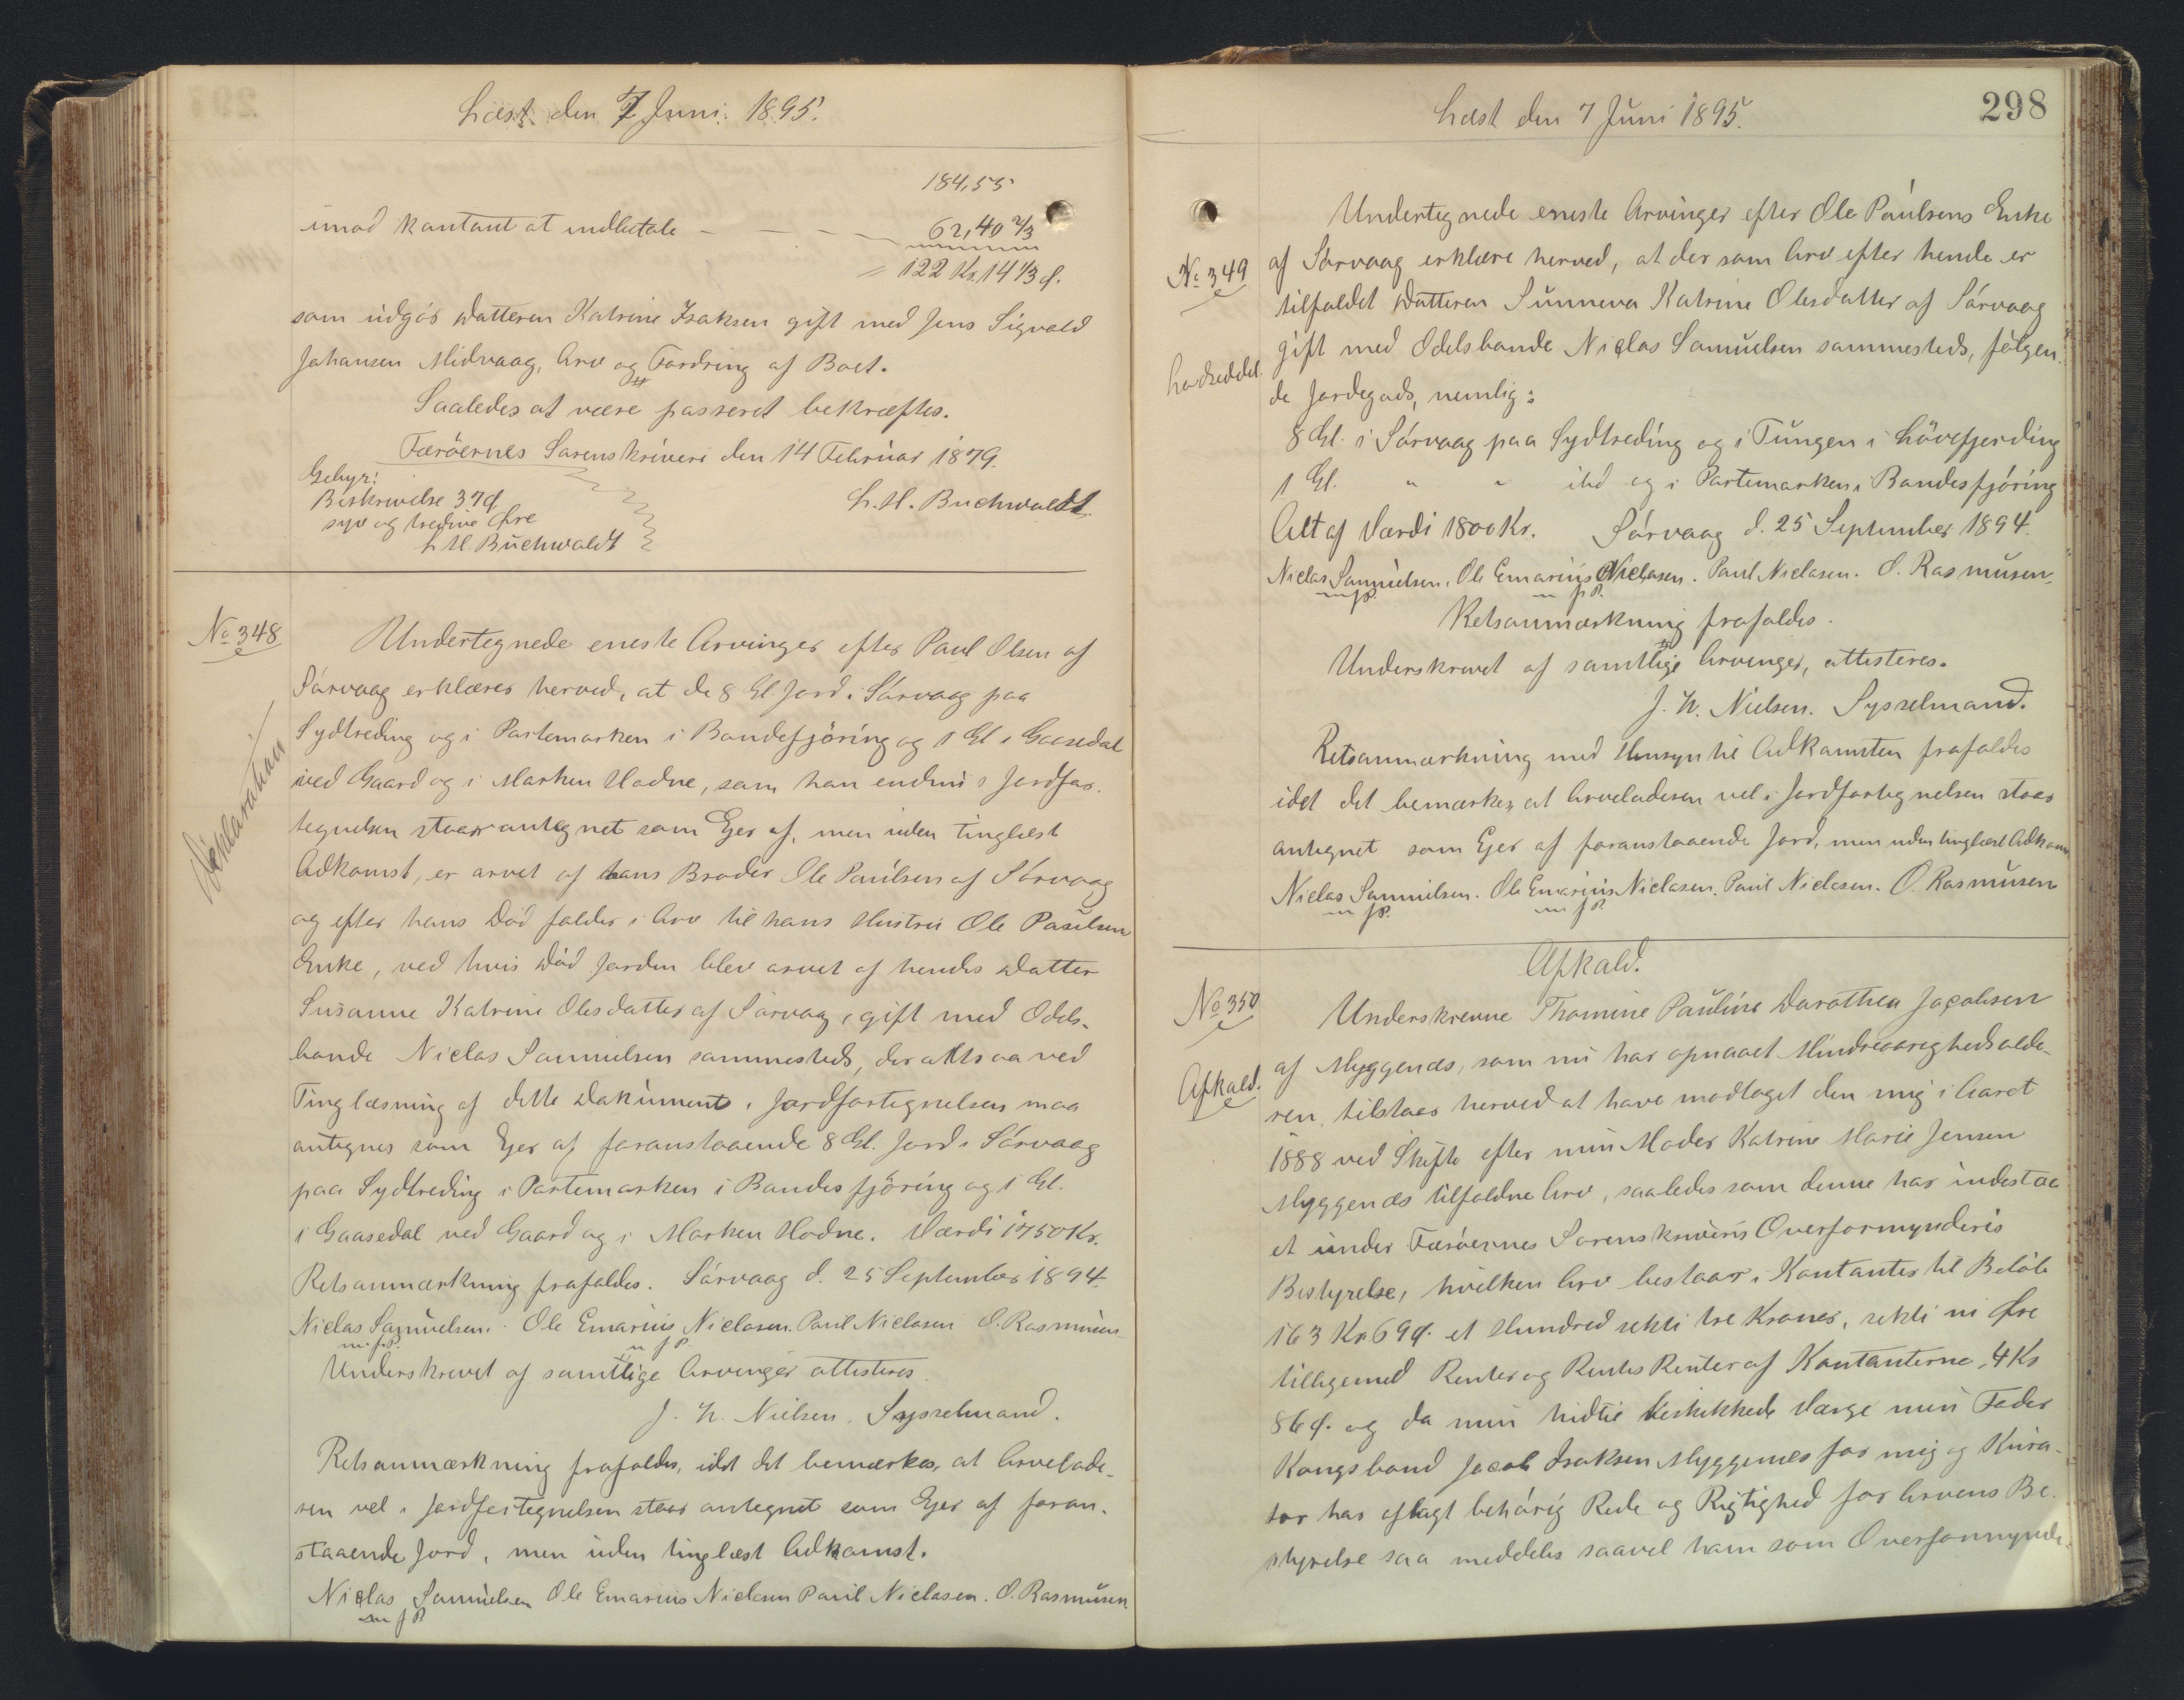 Læst den 7 Juni 1895.
184,55
imod kontant at indbetale - - - - 62,40 2/3
= 122 Kr. 14 1/3 Ø.
som udgør Datteren Katrine Isaksen gift med Jens Sigvald
Johansen Midvaag, Arv og Fordring af Boet.
Saaledes at være passeret bekræftes.
Færöernes Sorenskriveri den 14 Februar 1879.
Gebyr:
Beskrivelse 37 Ø
syv og tredive Øre
L. H. Buchwaldt
L. H. Buchwaldt.
No 348
Deklaration
Undertegnede eneste Arvinger efter Paul Olsen af
Sörvaag erklærer herved, at de 8 Gl. Jord i Sörvaag paa
Sydtreding og i Partemarken i Bondefjöring og 1 Gl i Gaasedal
ved Gaard og i Marken Hodne, som han endnu i Jordfor-
tegnelsen staar antegnet som Ejer af, men uden tinglæst
Adkomst, er arvet af hans Broder Ole Paulsen af Sörvaag
og efter hans Död falder i Arv til hans Hustru Ole Paulsens
Enke, ved hvis Död Jorden blev arvet af hendes Datter
Susanne Katrine Olesdatter af Sörvaag, gift med Odels-
bonde Niclas Samuelsen sammesteds, der altsaa ved
Tinglæsning af dette Dokument i Jordfortegnelsen maa
antegnes som Ejer af foranstaaende 8 Gl. Jord i Sörvaag
paa Sydtreding i Partemarken i Bondesfjöring og 1 Gl.
i Gaasedal ved Gaard og i Marken Hodne. Værdi 1750 Kr.
Retsanmærkning frafaldes. Sörvaag d. 25 September 1894
Niclas Samuelsen. Ole Emarius Niclasen. Paul Niclasen O. Rasmusen
m. f. P. m f P.
Underskrevet af samtlige Arvinger attesteres.
J. N. Nielsen, Sysselmand.
Retsanmærkning frafaldes, idet det bemærkes, at Arvelade-
ren vel i Jordfortegnelsen staar antegnet som Ejer af foran-
staaende Jord, men uden tinglæst Adkomst.
Niclas Samuelsen Ole Emarius Niclasen Paul Niclasen. O. Rasmusen
m f P
Læst den 7 Juni 1895.
298
No 349
Lodseddel.
Undertegnede eneste Arvinger efter Ole Paulsens Enke
af Sörvaag erklære herved, at der som Arv efter hende er
tilfaldet Datteren Sunneva Katrine Olesdatter af Sörvaag
gift med Odelsbonde Niclas Samuelsen sammesteds, fölgen-
de Jordegods, nemlig:
8 Gl. i Sörvaag paa Sydtreding og i Tungen i Hövefjerding
1 Gl. " " ibd og i Partemarken i Bondesfjöring
Alt af Værdi 1800 Kr. Sörvaag d. 25 September 1894.
Niclas Samuelsen. Ole Emarius Niclasen. Paul Niclasen. O. Rasmusen
m f P. m f P.
Retsanmærkning frafaldes.
Underskrevet af samtlige Arvinger, attesteres.
J. N. Nielsen. Sysselmand.
Retsanmærkning med Hensyn til Adkomsten frafaldes
idet det bemærkes, at Arveladeren vel i Jordfortegnelsen staar
antegnet som Ejer af foranstaaende Jord, men uden tinglæst Adkomst
Niclas Samuelsen. Ole Emarius Niclasen. Paul Niclasen. O. Rasmusen
m f P. m f P.
Afkald.
No 350
Afkald.
Underskrevne Thomine Pauline Dorothea Jacobsen
af Myggenæs, som nu har opnaaet Mindreaarighedsalde-
ren, tilstaar herved at have modtaget den mig i Aaret
1888 ved Skifte efter min Moder Katrine Marie Jensen
Myggenæs tilfaldne Arv, saaledes som denne har indestaa
et under Færöernes Sorenskriveris Overformynderis
Bestyrelse, hvilken Arv bestaar i Kontanter til Belöb
163 Kr. 69 Ø. et Hundred seksti tre Kroner, seksti ni Øre
tilligemed Renter og Rentes Renter af Kontanterne, 4 Kr
86 Ø. og da min hidtil beskikkede Værge min Fader
Kongsbond Jacob Isaksen Myggenæs for mig og Kura-
tor har aflagt behörig Rede og Rigtighed for Arvens Be-
styrelse saa meddeles saavel ham som Overformynde-